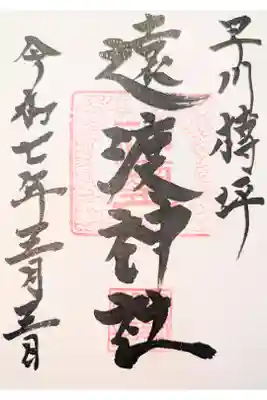 早川榑坪
遠渡神社
令和七年三月三日